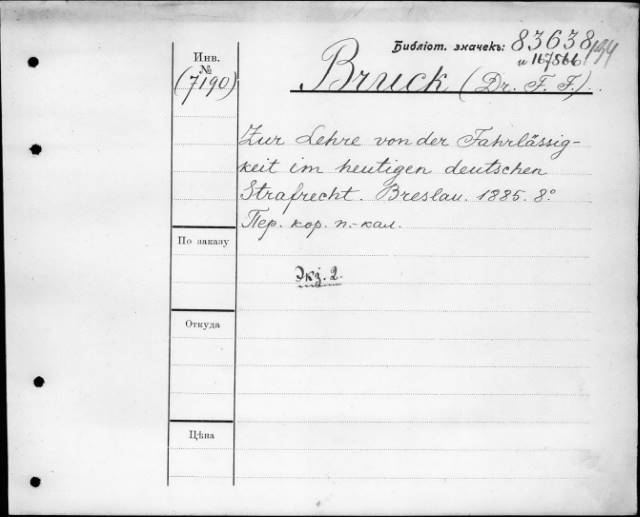 Библіот. значекъ: 83638/194
и 167566
Инв.
№
(7190)
Bruck (Dr. F. F.)
Zur Lehre von der Fahrlässig-
keit im heutigen deutschen
Strafrecht. Breslau. 1885. 8º
Пер. кор. п.-кал.
По заказу
Экз. 2.
Откуда
Цѣна